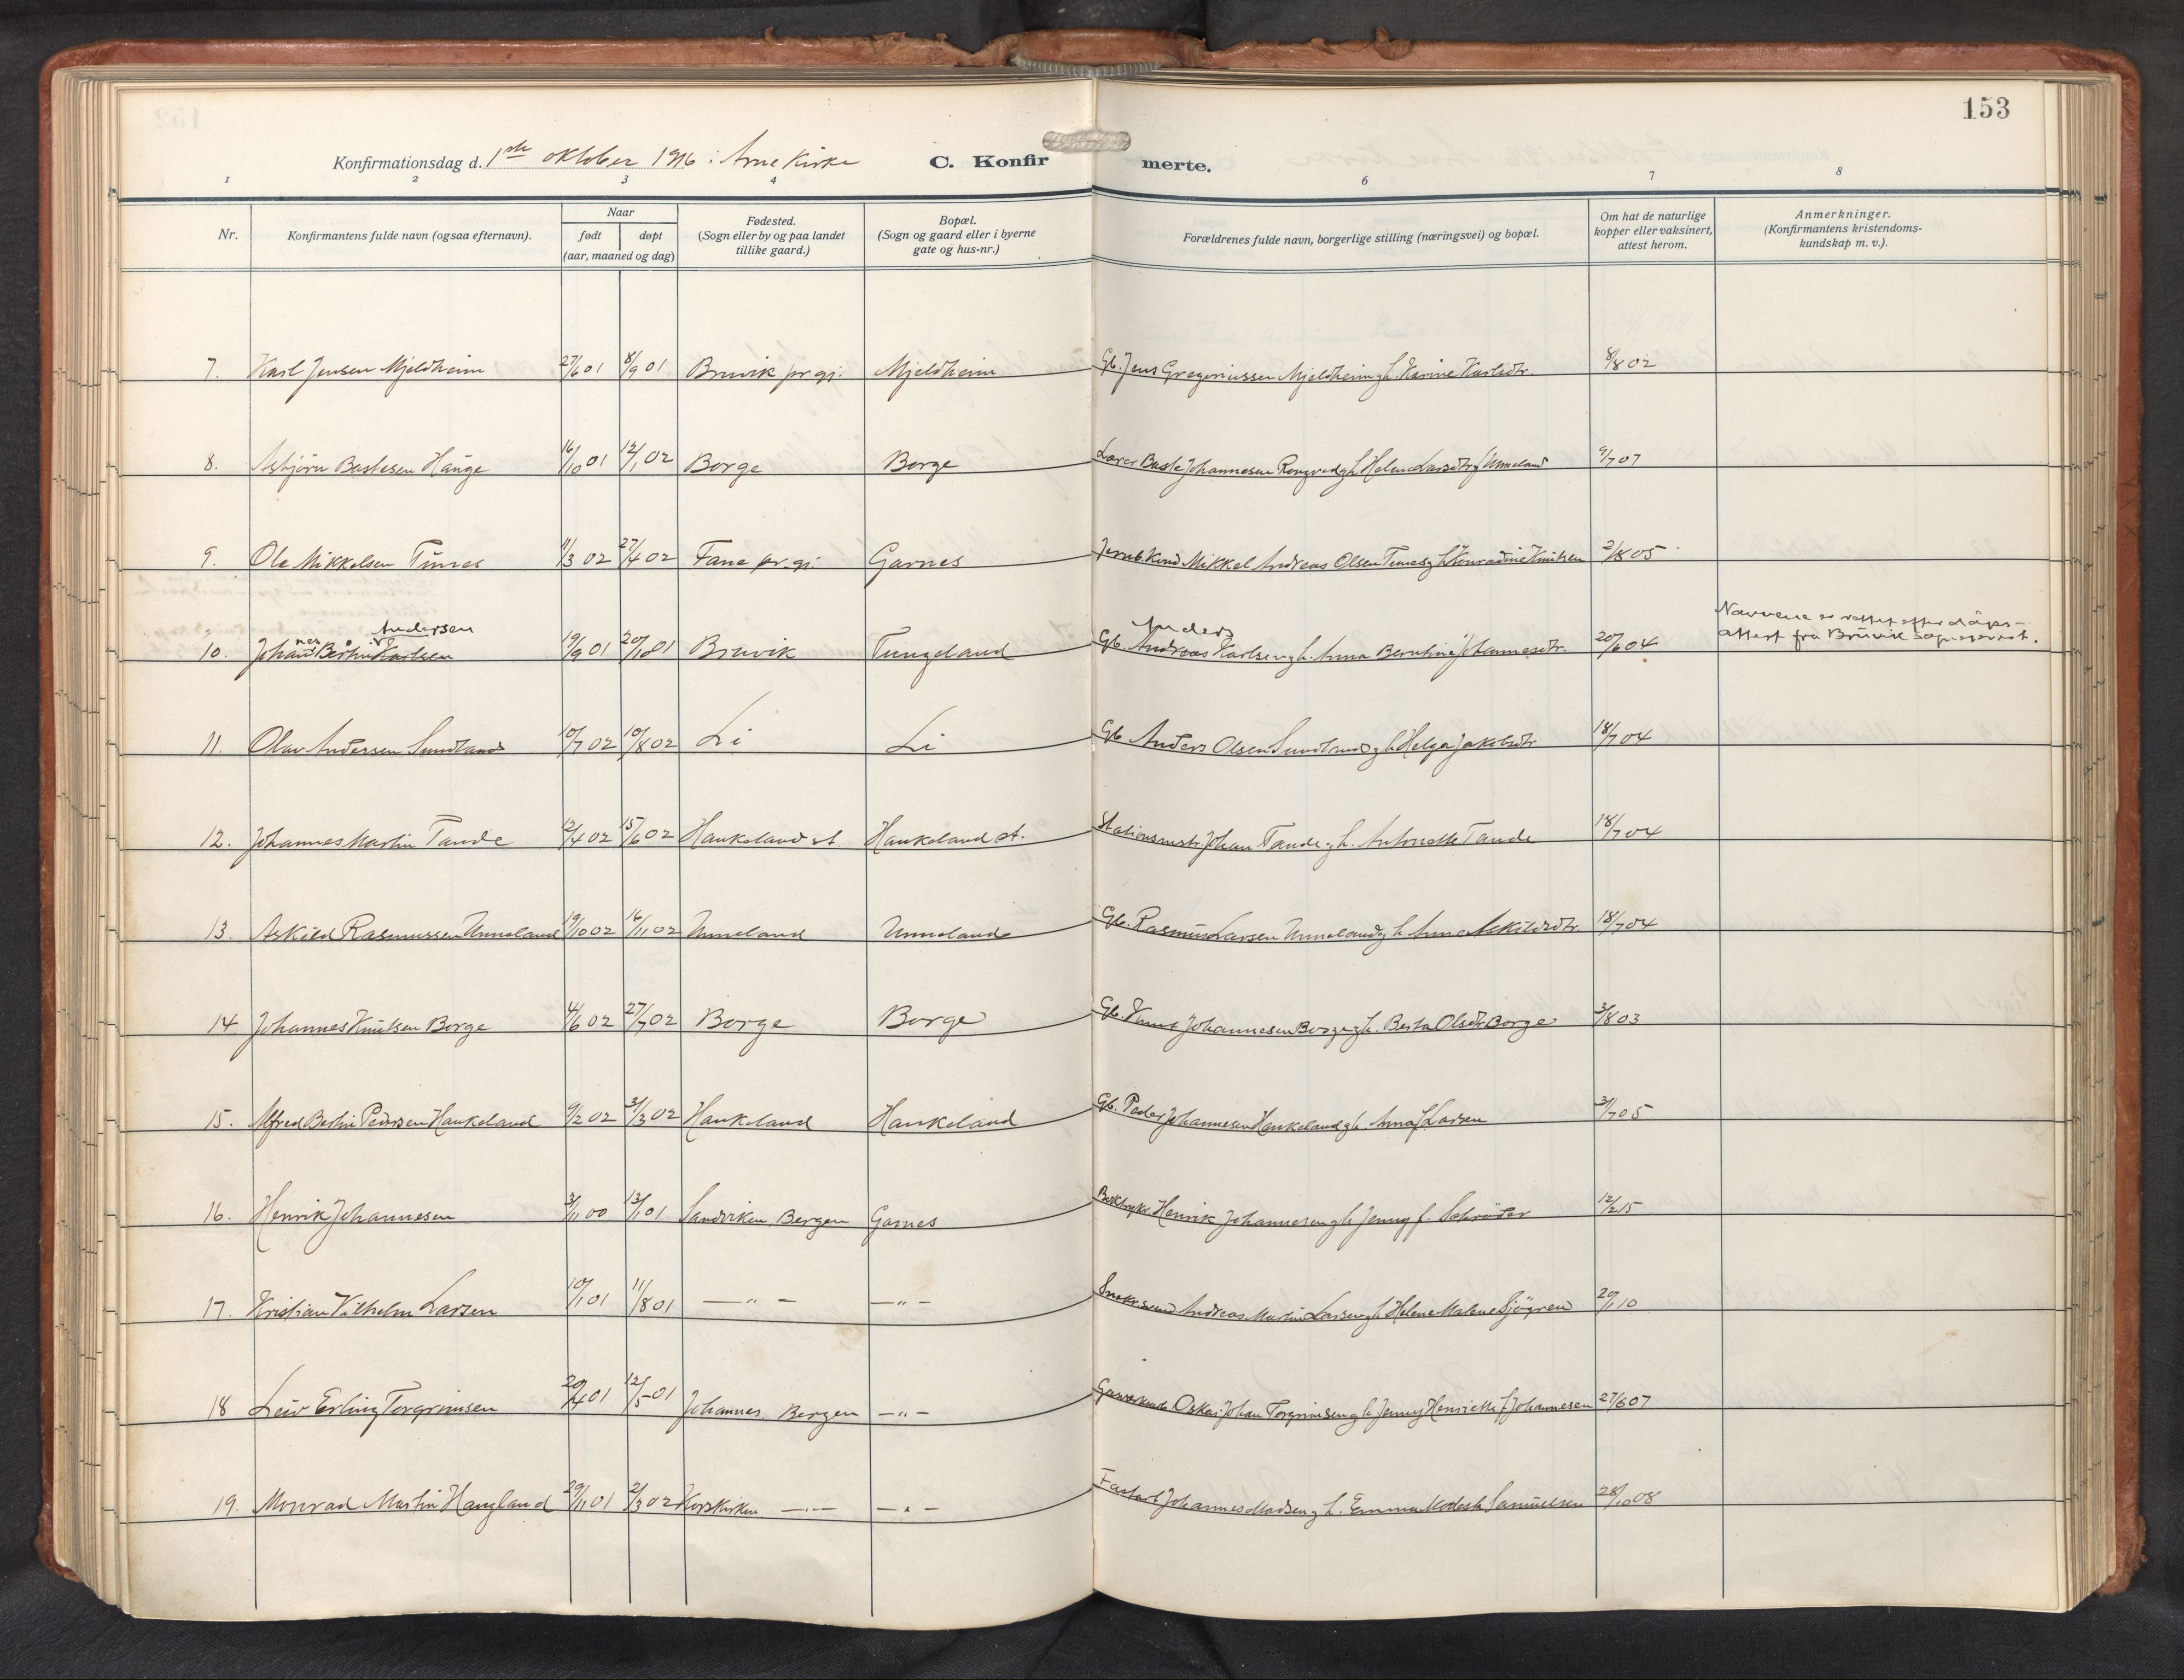 153
Konfirmationsdag d. 1ste oktober 1916 i Arne Kirke C. Konfirmerte.
1 2 3 4 6 7 8
Nr.
Konfirmantens fulde navn (ogsaa efternavn).
Naar
født døpt
(aar, maaned og dag)
Fødested.
(Sogn eller by og paa landet
tillike gaard.)
Bopæl.
(Sogn og gaard eller i byerne
gate og hus-nr.)
Forældrenes fulde navn, borgerlige stilling (næringsvei) og bopæl.
Om hat de naturlige
kopper eller vaksinert,
attest herom.
Anmerkninger.
(Konfirmantens kristendoms-
kundskap m. v.).
7. Karl Jensen Mjeldheim 27/6 01 8/9 01 Bruvik pr.gj. Mjeldheim Gb. Jens Gregoriussen Mjeldheim g h. Karine Karlsdtr. 8/8 02
8. Asbjörn Bastesen Hauge 16/10 01 12/1 02 Borge Borge Lærer Baste Johannesen g h Helene Larsdtr f Unneland 9/7 07
9. Ole Mikkelsen Tunes 11/3 02 27/4 02 Fane pr.gj. Garnes Mikkel Andreas Olsen Tunes g h Konradine Knutsen 2/8 05
Andersen
10. Johannes Bertin Karlsen 19/9 01 20/10 01 Bruvik Tungeland Gb. Anders Andreas Karlsen g h. Anna Berntine Johannesdtr. 20/6 04 Navnene er rettet efter dåps-
attest fra Bruvik sogneprest.
11. Olav Andersen Sundland 10/7 02 10/8 02 Li Li Gb Anders Olsen Sundland g h Helga Jakobsdtr 18/7 04
12. Johannes Martin Tande 12/4 02 15/6 02 Haukeland st. Haukeland st. Stationsmstr. Johan Tande g h. Antonette Tande 18/7 04
13. Askild Rasmussen Unneland 19/10 02 16/11 02 Unneland Unneland Gb. Rasmus Larsen Unneland g h Anna Askildsdtr. 18/7 04
14. Johannes Knutsen Borge 4/6 02 27/7 02 Borge Borge Gb. Knut Johannesen Borge g h. Berta Olsdtr Borge 3/8 03
15. Alfred Bertin Pedersen Haukeland 9/2 02 31/3 02 Haukeland Haukeland Gb. Peder Johannesen Haukeland g h. Anna f Larsen 3/7 05
16. Henrik Johannesen 3/11 00 13/1 01 Sandviken Bergen Garnes Henrik Johannesen g h Jenny f. Schröder 12/2 15
17. Kristian Vilhelm Larsen 10/1 01 11/8 01 — " — — " — Andreas Martin Larsen g h Helene Malene Sjögren 20/1 10
18 Leiv Erling Torgrimsen 20/4 01 12/5 01 Johannes, Bergen — " — Oskar Johan Torgrimsen g h Jenny Henriette f Johannesen 27/6 07
19. Monrad Martin Haugland 29/11 01 2/3 02 Korskirken — " — — " — Johannes Madsen g h. Emma Samuelsen 28/10 08